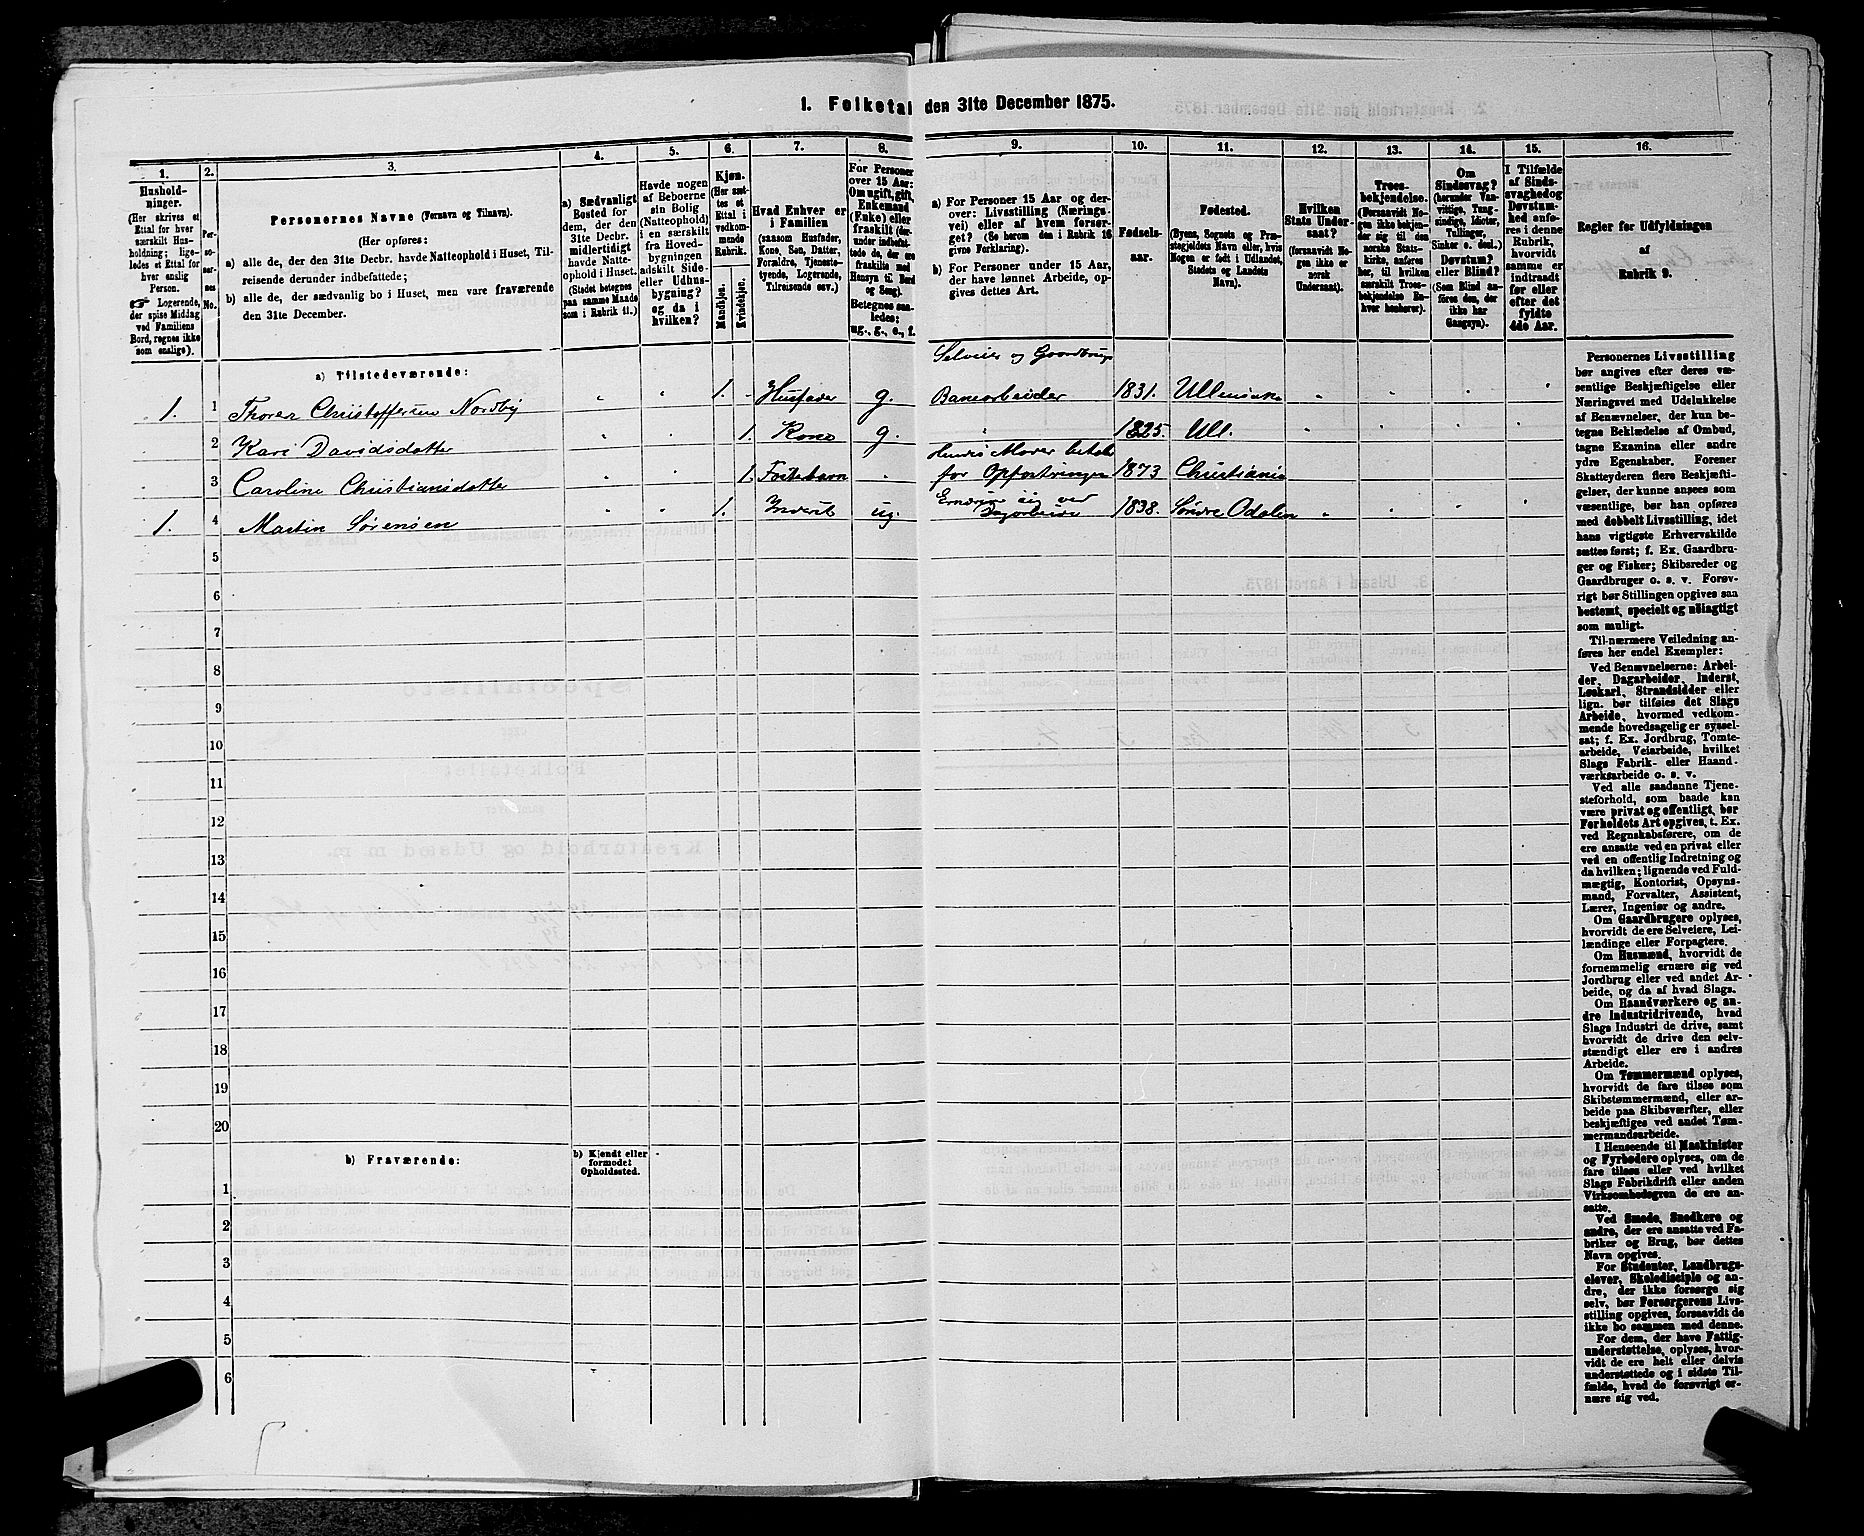 1. Folketal den 31te December 1875.
1. 2. 3. 4. 5. 6. 7. 8. 9. 10. 11. 12. 13. 14. 15. 16.
Hushold-
ninger.
(Her skrives et
Ettal for hver
særskilt Hus-
holdning; lige-
ledes et Ettal for
hver enslig
Person.
☞ Logerende,
der spise Middag
ved Familiens
Bord, regnes ikke
som enslige).
Per-
so-
ner-
nes
No.
Personernes Navne (Fornavn og Tilnavn).
(Her opføres:
a) alle de, der den 31te Decbr. havde Natteophold i Huset, Til-
reisende derunder indbefattede;
b) alle de, der sædvanlig bo i Huset, men vare fraværende
den 31te December.
a) Sædvanligt
Bosted for
dem, der den
31te Decbr.
midlertidigt
havde Natte-
ophold i Huset.
(Stedet betegnes
paa samme Maade
som i Rubrik 11.)
Havde nogen
af Beboerne
sin Bolig
(Natteophold)
i en særskilt
fra Hoved-
bygningen
adskilt Side-
eller Udhus-
bygning?
og da i
hvilken?
Kjøn.
(Her sæt-
tes et
Ettal i
vedkom-
mende
Rubrik.
Mandkjøn.
Kvindekjøn.
Hvad Enhver er
i Familien
(saasom Husfader,
Kone, Søn, Datter,
Forældre, Tjeneste-
tyende, Logerende,
Tilreisende osv.)
For Personer
over 15 Aar:
Om ugift, gift,
Enkemand
(Enke) eller
fraskilt (der-
under indbefat-
tede de, der ere
fraskilte med
Hensyn til Bord
og Seng).
Betegnes saa-
ledes:
ug., g., e., f.
a) For Personer 15 Aar og der-
over: Livsstilling (Nærings-
vei) eller af hvem forsør-
get? (Se herom den i Rubrik 16
givne Forklaring).
b) For Personer under 15 Aar,
der have lønnet Arbeide, op-
gives dettes Art.
Fødsels-
aar.
Fødested.
(Byens, Sognets og Præ-
stegjeldets Navn eller, hvis
Nogen er født i Udlandet,
Stedets og Landets
Navn).
Hvilken
Stats Under-
saat?
(forsaavidt No-
gen ikke er
norsk
Undersaat).
Troes-
bekjendelse.
(Forsaavidt No-
gen ikke bekjen-
der sig til den
norske Stats-
kirke, anføres
her, til hvilken
særskilt Troes-
bekjendelse En-
hver henhører).
Om
Sindssvag?
(herunder Van-
vittige, Tung-
sindige, Idioter,
Tullinger,
Sinker o. desl.)
Døvstum?
eller Blind?
(Som Blind an-
føres den, der
ikke har
Gangsyn).
I Tilfælde
af Sinds-
svaghed og
Døvstum-
hed anfø-
res i denne
Rubrik,
hvorvidt
samme er
indtraadt
før eller
efter det
fyldte
4de Aar.
Regler for Udfyldningen
af
Rubrik 9.
a) Tilstedeværende:
Selveier og Gaardbruger
1. 1 Thorer Christoffersen Nordby " " 1. - Husfader g. Banearbeider 1831. Ullensaker " " " "
2 Kari Davidsdatter " " 1. Kone g. " 1825. Ull.
Hendes Moder betaler
3 Caroline Christiansdatter " " 1. Fosterbarn . for Opfostringen 1873 Christiania
Ernærer sig ved
1. 4 Martin Sørensen " " 1. Inderst ug. Dagarbeide 1838. Søndre Odalen " " " "
5
6
7
8
9
10
11
12
13
14
15
16
17
18
19
20
b) Fraværende:
b) Kjendt eller
formodet
Opholdssted.
1
2
3
4
5
6
Personernes Livsstilling
bør angives efter deres væ-
sentlige Beskjæftigelse eller
Næringsvei med Udelukkelse
af Benævnelser, der kun be-
tegne Beklædelse af Ombud,
tagne Examina eller andre
ydre Egenskaber. Forener
Skatteyderen flere Beskjæfti-
gelser, der kunne ansees som
væsentlige, bør han opføres
med dobbelt Livsstilling, idet
hans vigtigste Erhvervskilde
sættes først; f. Ex. Gaardbru-
ger og Fisker; Skibsreder og
Gaardbruger o. s. v. Forøv-
rigt bør Stillingen opgives saa
bestemt, specielt og nöiagtigt
som muligt.
Til nærmere Veiledning an-
føres her endel Exempler:
Ved Benævnelserne: Arbei-
der, Dagarbeider, Inderst,
Løskarl, Strandsidder eller
lign. bør tilføies det Slags
Arbeide, hvormed vedkom-
mende hovedsagelig er syssel-
sat; f. Ex. Jordbrug, Tomte-
arbeide, Veiarbeide, hvilket
Slags Fabrik- eller Haand-
værksarbeide o. s. v.
Ved alle saadanne Tjene-
steforhold, som baade kan
være privat og offentligt, bør
Forholdets Art opgives, t. Ex.
ved Regnskabsførere, om de
ere ansatte ved en privat eller
ved en offentlig Indretning og
da hvilken; lignende ved Fuld-
mægtig, Kontorist, Opsyns-
mand, Forvalter, Assistent,
Lærer, Ingeniør og andre.
Om Gaardbrugere oplyses,
hvorvidt de ere Selveiere, Lei-
lændinge eller Forpagtere.
Om Husmænd, hvorvidt de
fornemmelig ernære sig ved
Jordbrug eller ved andet Ar-
beide, og da af hvad Slags.
Om Haandværkere og an-
dre Industridrivende, hvad
Slags Industri de drive, samt
hvorvidt de drive den selv-
stændigt eller ere i andres
Arbeide.
Om Tømmermænd oplyses,
hvorvidt de fare tilsøs som
Skibstømmermænd, eller ar-
beide paa Skibsværfter, eller
beskjæftiges ved andet Tøm-
mermandsarbeide.
I Henseende til Maskinister
og Fyrbødere oplyses, om de
fare tilsøs eller ved hvilket
Slags Fabrikdrift eller anden
Virksomhedsgren de ere an-
satte.
Ved Smede, Snedkere og
andre, der ere ansatte ved Fa-
briker og Brug, bør dettes
Navn opgives.
For Studenter, Landbrugs-
elever, Skoledisciple og an-
dre, der ikke forsørge sig
selv, bør Forsørgerens Livs-
stilling opgives, forsaavidt de
ikke bo sammen med denne.
For dem, der have Fattig-
understøttelse, oplyses, hvor-
vidt de ere helt eller delvis
understøttede og i sidste Til-
fælde, hvad de forøvrigt er-
nære sig ved.